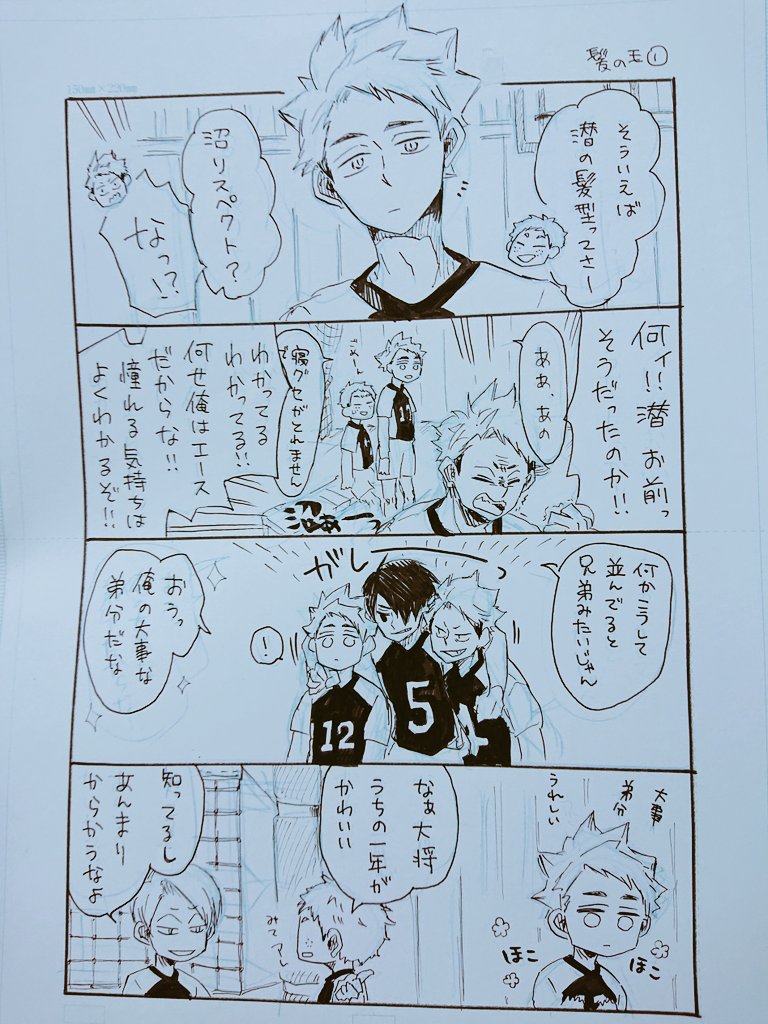 髪の玉①
150mm×220mm
そういえば
潜の髪型ってさー
沼リスペクト?
なっ?!
何ィ!!潜お前っ
そうだったのか!!
ああ、あの
ごめーん
寝グセがとれません
で
わかってる
わかってる!!
何せ俺はエース
だからな!!
憧れる気持ちは
よくわかるぞ!!
沼ぁーっ
何かこうして
並んでると
兄弟みたいじゃん
ガシッ
!
12
5
おうっ
俺の大事な
弟分だな
大事
弟分
うれしい
ほこ
ほこ
なぁ大将
うちの一年が
かわいい
みてアレ
知ってるし
あんまり
からかうなよ